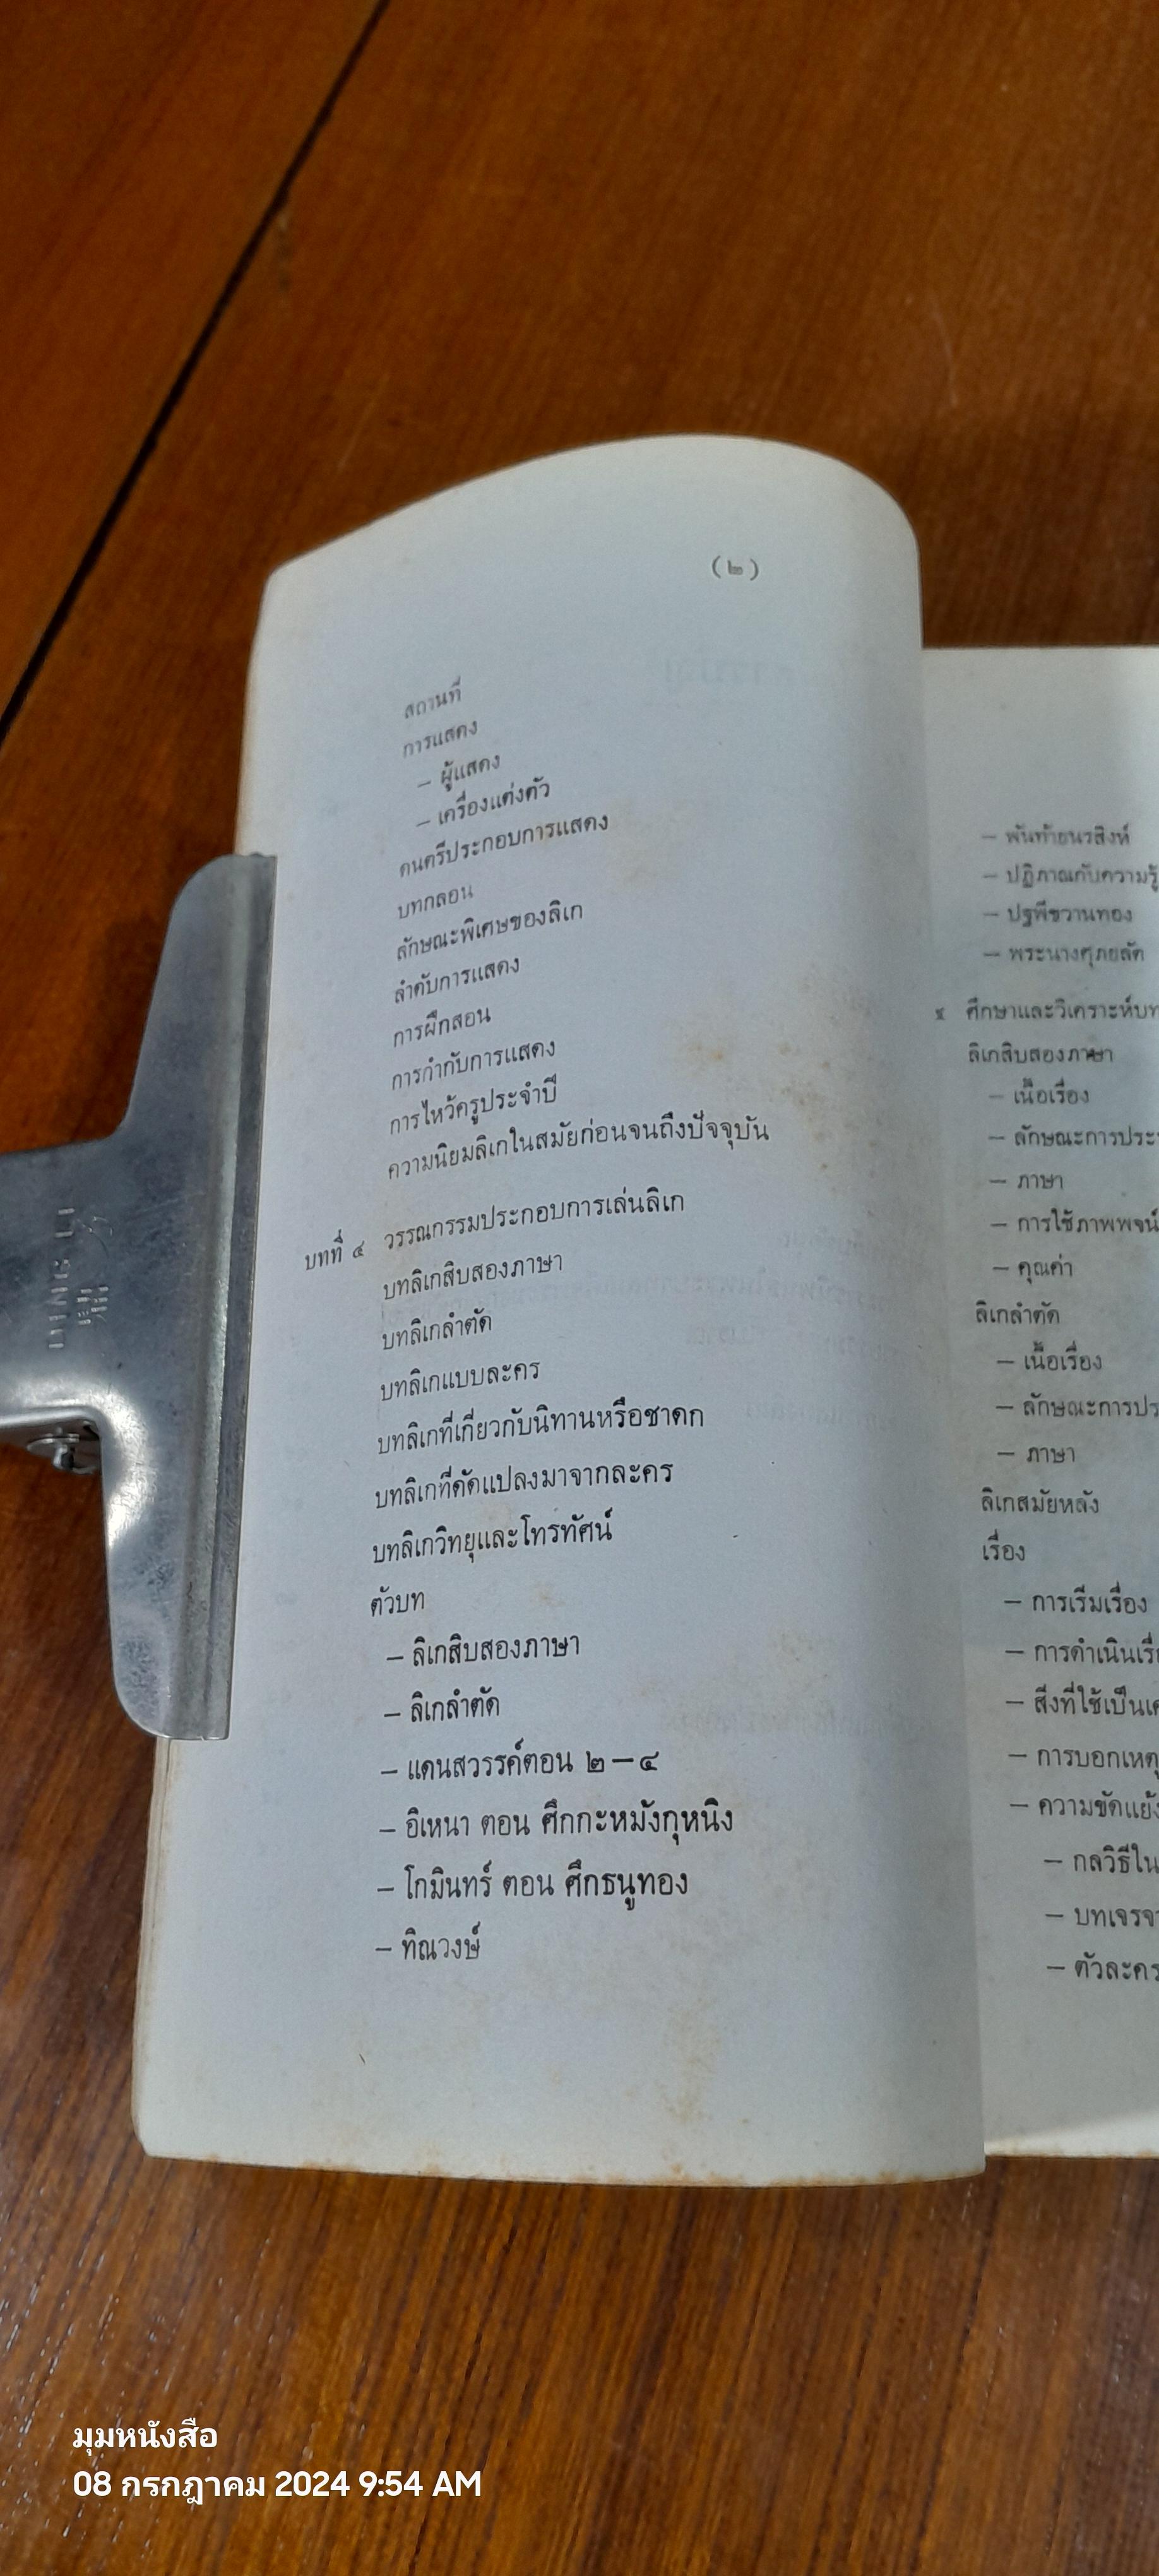 (๒)
สถานที่
การแสดง
– ผู้แสดง
– เครื่องแต่งตัว
ดนตรีประกอบการแสดง
บทกลอน
ลักษณะพิเศษของลิเก
ลำดับการแสดง
การฝึกสอน
การกำกับการแสดง
การไหว้ครูประจำปี
ความนิยมลิเกในสมัยก่อนจนถึงปัจจุบัน
บทที่ ๔ วรรณกรรมประกอบการเล่นลิเก
บทลิเกสิบสองภาษา
บทลิเกลำตัด
บทลิเกแบบละคร
บทลิเกที่เกี่ยวกับนิทานหรือชาดก
บทลิเกที่ดัดแปลงมาจากละคร
บทลิเกวิทยุและโทรทัศน์
ตัวบท
– ลิเกสิบสองภาษา
– ลิเกลำตัด
– แดนสวรรค์ตอน ๒–๔
– อิเหนา ตอน ศึกกะหมังกุหนิง
– โกมินทร์ ตอน ศึกธนูทอง
– ทิณวงษ์
– พันท้ายนรสิงห์
– ปฏิภาณกับความรู้
– ปฐพีขวานทอง
– พระนางศุภยลัต
๕ ศึกษาและวิเคราะห์บท
ลิเกสิบสองภาษา
– เนื้อเรื่อง
– ลักษณะการประ
– ภาษา
– การใช้ภาพพจน์
– คุณค่า
ลิเกลำตัด
– เนื้อเรื่อง
– ลักษณะการประ
– ภาษา
ลิเกสมัยหลัง
เรื่อง
– การเริ่มเรื่อง
– การดำเนินเรื่
– สิ่งที่ใช้เป็น
– การบอกเหตุ
– ความขัดแย้ง
– กลวิธีใน
– บทเจรจา
– ตัวละคร
มุมหนังสือ
08 กรกฎาคม 2024 9:54 AM